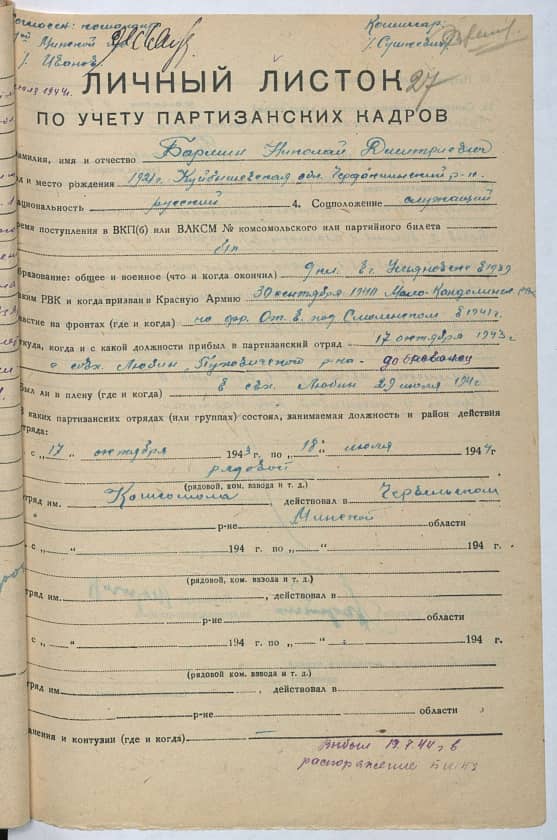 Комиссар:
Минской
/. Иванов
/Сушкевич/
июля 1944г.
ЛИЧНЫЙ ЛИСТОК 27
ПО УЧЕТУ ПАРТИЗАНСКИХ КАДРОВ
амилия, имя и отчество Николай Дмитриевич
д и место рождения 1921г. Куйбышевская обл. р-н.
циональность русский 4. Соцположение служащий
ремя поступления в ВКП(б) или ВЛКСМ № комсомольского или партийного билета
б/п
бразование: общее и военное (что и когда окончил) 9 кл. в г. Ульяновске в 1939
ким РВК и когда призван в Красную Армию 30 сентября 1940
астие на фронтах (где и когда) на фр. От. в. под Смоленском в 1941г.
куда, когда и с какой должности прибыл в партизанский отряд 17 октября 1943г
с свх. Любин Пуховичского р-на.
ыл ли в плену (где и когда) в свх. Любин 29 июля 194
каких партизанских отрядах (или группах) состоял, занимаемая должность и район действия
тряда:
с „17 “ октября 1943 г. по „18“ июля 1944
рядовой
(рядовой, ком. взвода и т. д.)
тряд им. Комсомола , действовал в Червеньском
р-не Минской области
с „ “ 194 г. по „ “ 194 г.
(рядовой, ком. взвода и т. д.)
тряд им. , действовал в
р-не области
с „ “ 194 г. по „ “ 194 г.
(рядовой, ком. взвода и т. д.)
тряд им. , действовал в
р-не области
анения и контузии (где и когда)
Выбыл 19.7.44г. в
распоряжение